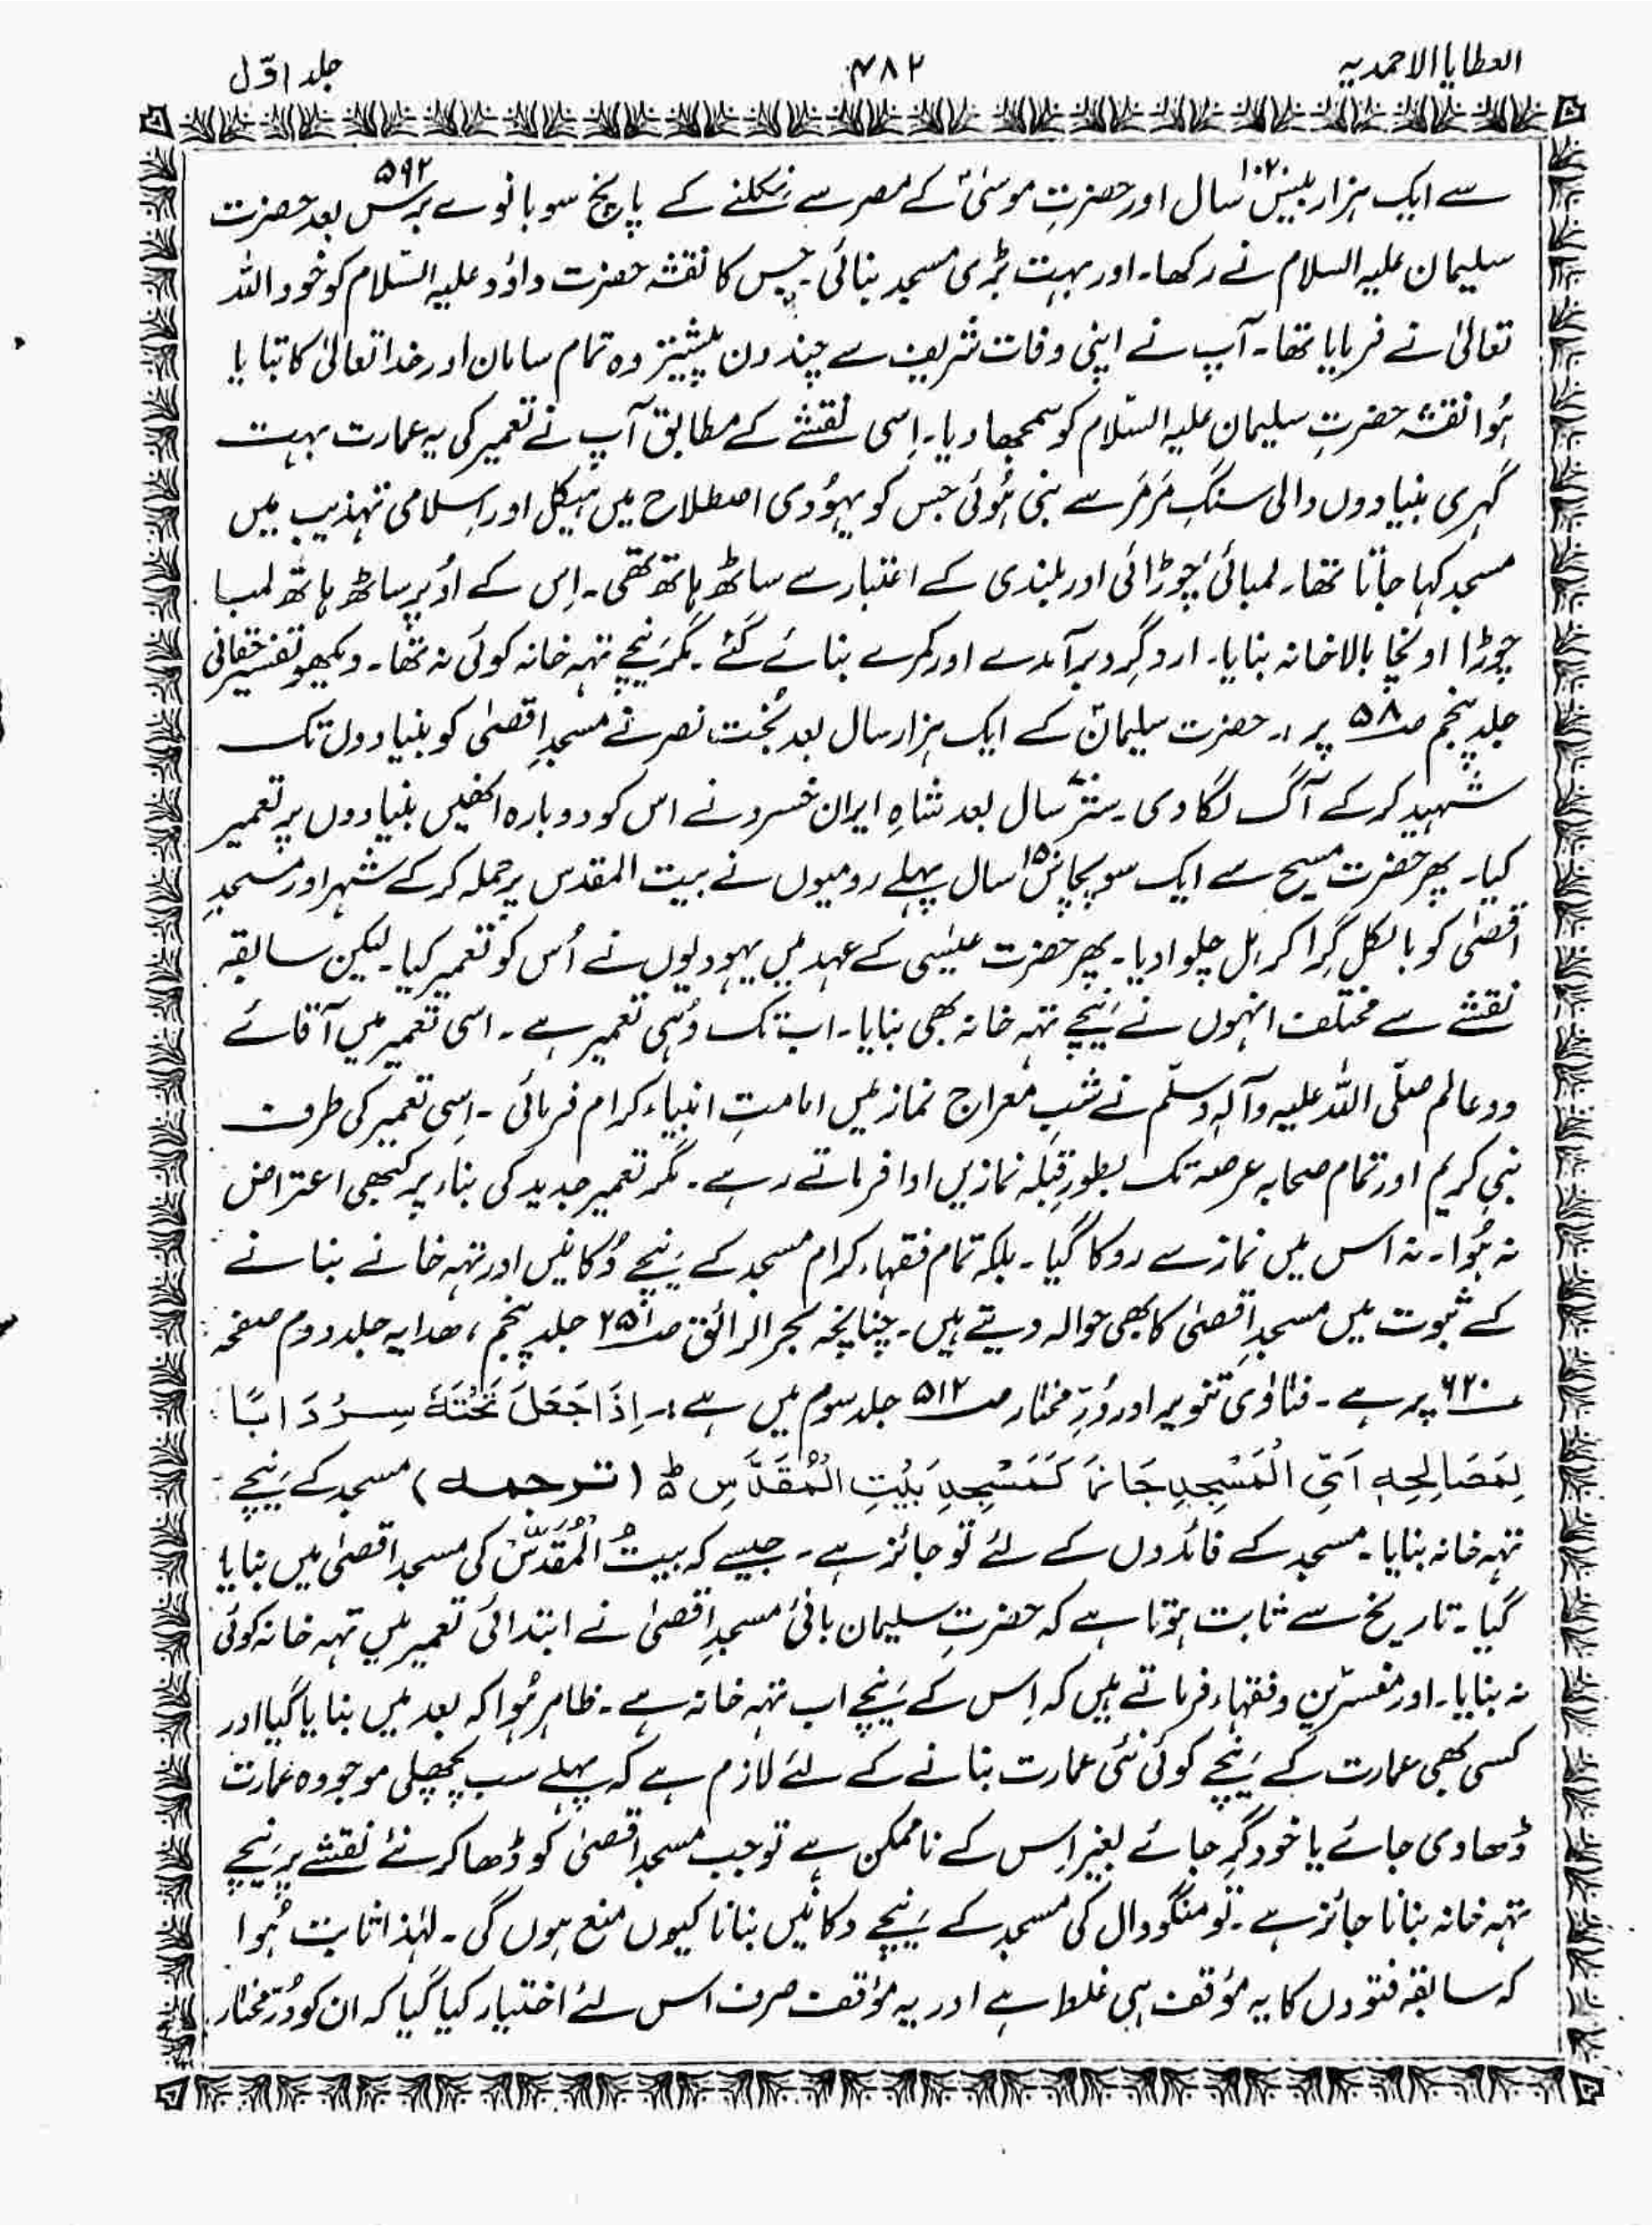 العطایا الاحمدیہ
۴۸۲
جلد اوّل
سے ایک ہزار بیس ۱۰۲۰ سال اور حضرتِ موسیٰؑ کے مصر سے نکلنے کے پانچ سو بانوے ۵۹۲ برس بعد حضرت
سلیمان علیہ السلام نے رکھا۔ اور بہت بڑی مسجد بنائی۔ جس کا نقشہ حضرت داؤد علیہ السّلام کو خود اللہ
تعالیٰ نے فرمایا تھا۔ آپ نے اپنی وفات شریف سے چند دن پیشتر وہ تمام سامان اور خدا تعالیٰ کا بتایا
ہُوا نقشہ حضرتِ سلیمان علیہ السّلام کو سمجھا دیا۔ اِسی نقشے کے مطابق آپ نے تعمیر کی یہ عمارت بہت
گہری بنیادوں والی سنگِ مَرمَر سے بنی ہُوئی جس کو یہوُدی اصطلاح میں ہیکل اور اِسلامی تہذیب میں
مسجد کہا جاتا تھا۔ لمبائی چوڑائی اور بلندی کے اعتبار سے ساٹھ ہاتھ تھی۔ اِس کے اوُپر ساٹھ ہاتھ لمبا
چوڑا اونچا بالاخانہ بنایا۔ ارد گِرد برآمدے اور کمرے بنائے گئے۔ مگر نیچے تہہ خانہ کوئی نہ تھا۔ دیکھو تفسیر حقانی
جلد پنجم صـ۵۸ پر :۔ حضرت سلیمانؑ کے ایک ہزار سال بعد بُخت نصر نے مسجدِ اقصیٰ کو بنیادوں تک
شہید کر کے آگ لگا دی۔ ستّر سال بعد شاہِ ایران خسرو نے اس کو دوبارہ انھیں بنیادوں پر تعمیر
کیا۔ پھر حضرت مسیح سے ایک سو پچاس ۱۵۰ سال پہلے رومیوں نے بیت المقدس پر حملہ کر کے شہر اور مسجدِ
اقصیٰ کو بالکل گِرا کر ہل چلوا دیا۔ پھر حضرت عیسٰی کے عہد میں یہودیوں نے اُس کو تعمیر کیا۔ لیکن سابقہ
نقشے سے مختلف انہوں نے نیچے تہہ خانہ بھی بنایا۔ اب تک وُہی تعمیر ہے۔ اسی تعمیر میں آقائے
دو عالم صلّی اللہ علیہ وآلہٖ وسلّم نے شبِ معراج نماز میں امامتِ انبیاء کرام فرمائی۔ اِسی تعمیر کی طرف
نبی کریم اور تمام صحابہ عرصہ تک بطورِ قبلہ نمازیں ادا فرماتے رہے۔ مگر تعمیر جدید کی بناء پر کبھی اعتراض
نہ ہُوا۔ نہ اس میں نماز سے روکا گیا۔ بلکہ تمام فقہاء کرام مسجد کے نیچے دُکانیں اور تہہ خانے بنانے
کے ثبوت میں مسجدِ اقصیٰ کا بھی حوالہ دیتے ہیں۔ چنانچہ بحر الرائق صـ۲۵۱ جلد پنجم، ھدایہ جلد دوم صفحہ
۶۲۰ پر ہے۔ فتاوٰی تنویر اور دُرِّ مختار صـ۵۱۲ جلد سوم میں ہے :۔ اِذَا جَعَلَ تَحْتَهٗ سِرْدَابًا
لِمَصَالِحِهٖ اَیِ الْمَسْجِدِ جَازَ كَمَسْجِدِ بَيْتِ الْمُقَدَّسِ ط (ترجمہ) مسجد کے نیچے
تہہ خانہ بنایا۔ مسجد کے فائدوں کے لئے تو جائز ہے۔ جیسے کہ بیتُ الْمُقَدَّس کی مسجد اقصیٰ میں بنایا
گیا۔ تاریخ سے ثابت ہوتا ہے کہ حضرتِ سلیمان بانئ مسجدِ اقصیٰ نے ابتدائی تعمیر میں تہہ خانہ کوئی
نہ بنایا۔ اور مفسرّین و فقہاء فرماتے ہیں کہ اِس کے نیچے اب تہہ خانہ ہے۔ ظاہر ہُوا کہ بعد میں بنایا گیا اور
کسی بھی عمارت کے نیچے کوئی نئی عمارت بنانے کے لئے لازم ہے کہ پہلے سب پچھلی موجودہ عمارت
ڈھادی جائے یا خود گِر جائے بغیر اِس کے ناممکن ہے تو جب مسجد اقصیٰ کو ڈھا کر نئے نقشے پر نیچے
تہہ خانہ بنانا جائز ہے۔ تو منگووال کی مسجد کے نیچے دکانیں بنانا کیوں منع ہوں گی۔ لہٰذا ثابت ہُوا
کہ سابقہ فتووں کا یہ مؤقف ہی غلط ہے اور یہ مؤقف صرف اس لئے اختیار کیا گیا کہ ان کو دُرِّ مختار